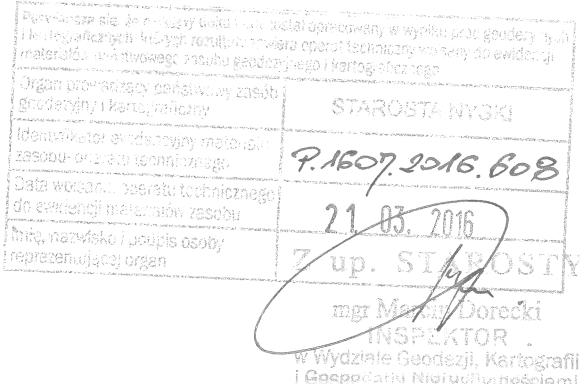 Poświadcza się, że niniejszy dokument został opracowany w wyniku prac geodezyjnych
i kartograficznych, których rezultaty zawiera operat techniczny wpisany do ewidencji
materiałów państwowego zasobu geodezyjnego i kartograficznego
Organ prowadzący państwowy zasób
geodezyjny i kartograficzny
STAROSTA NYSKI
Identyfikator ewidencyjny materiału
zasobu- operatu technicznego
P.1607.2016.608
Data wpisania operatu technicznego
do ewidencji materiałów zasobu
21. 03. 2016
Imię, nazwisko i podpis osoby
reprezentującej organ
Z up. STAROSTY
mgr Marcin Dorecki
INSPEKTOR
w Wydziale Geodezji, Kartografii
i Gospodarki Nieruchomościami